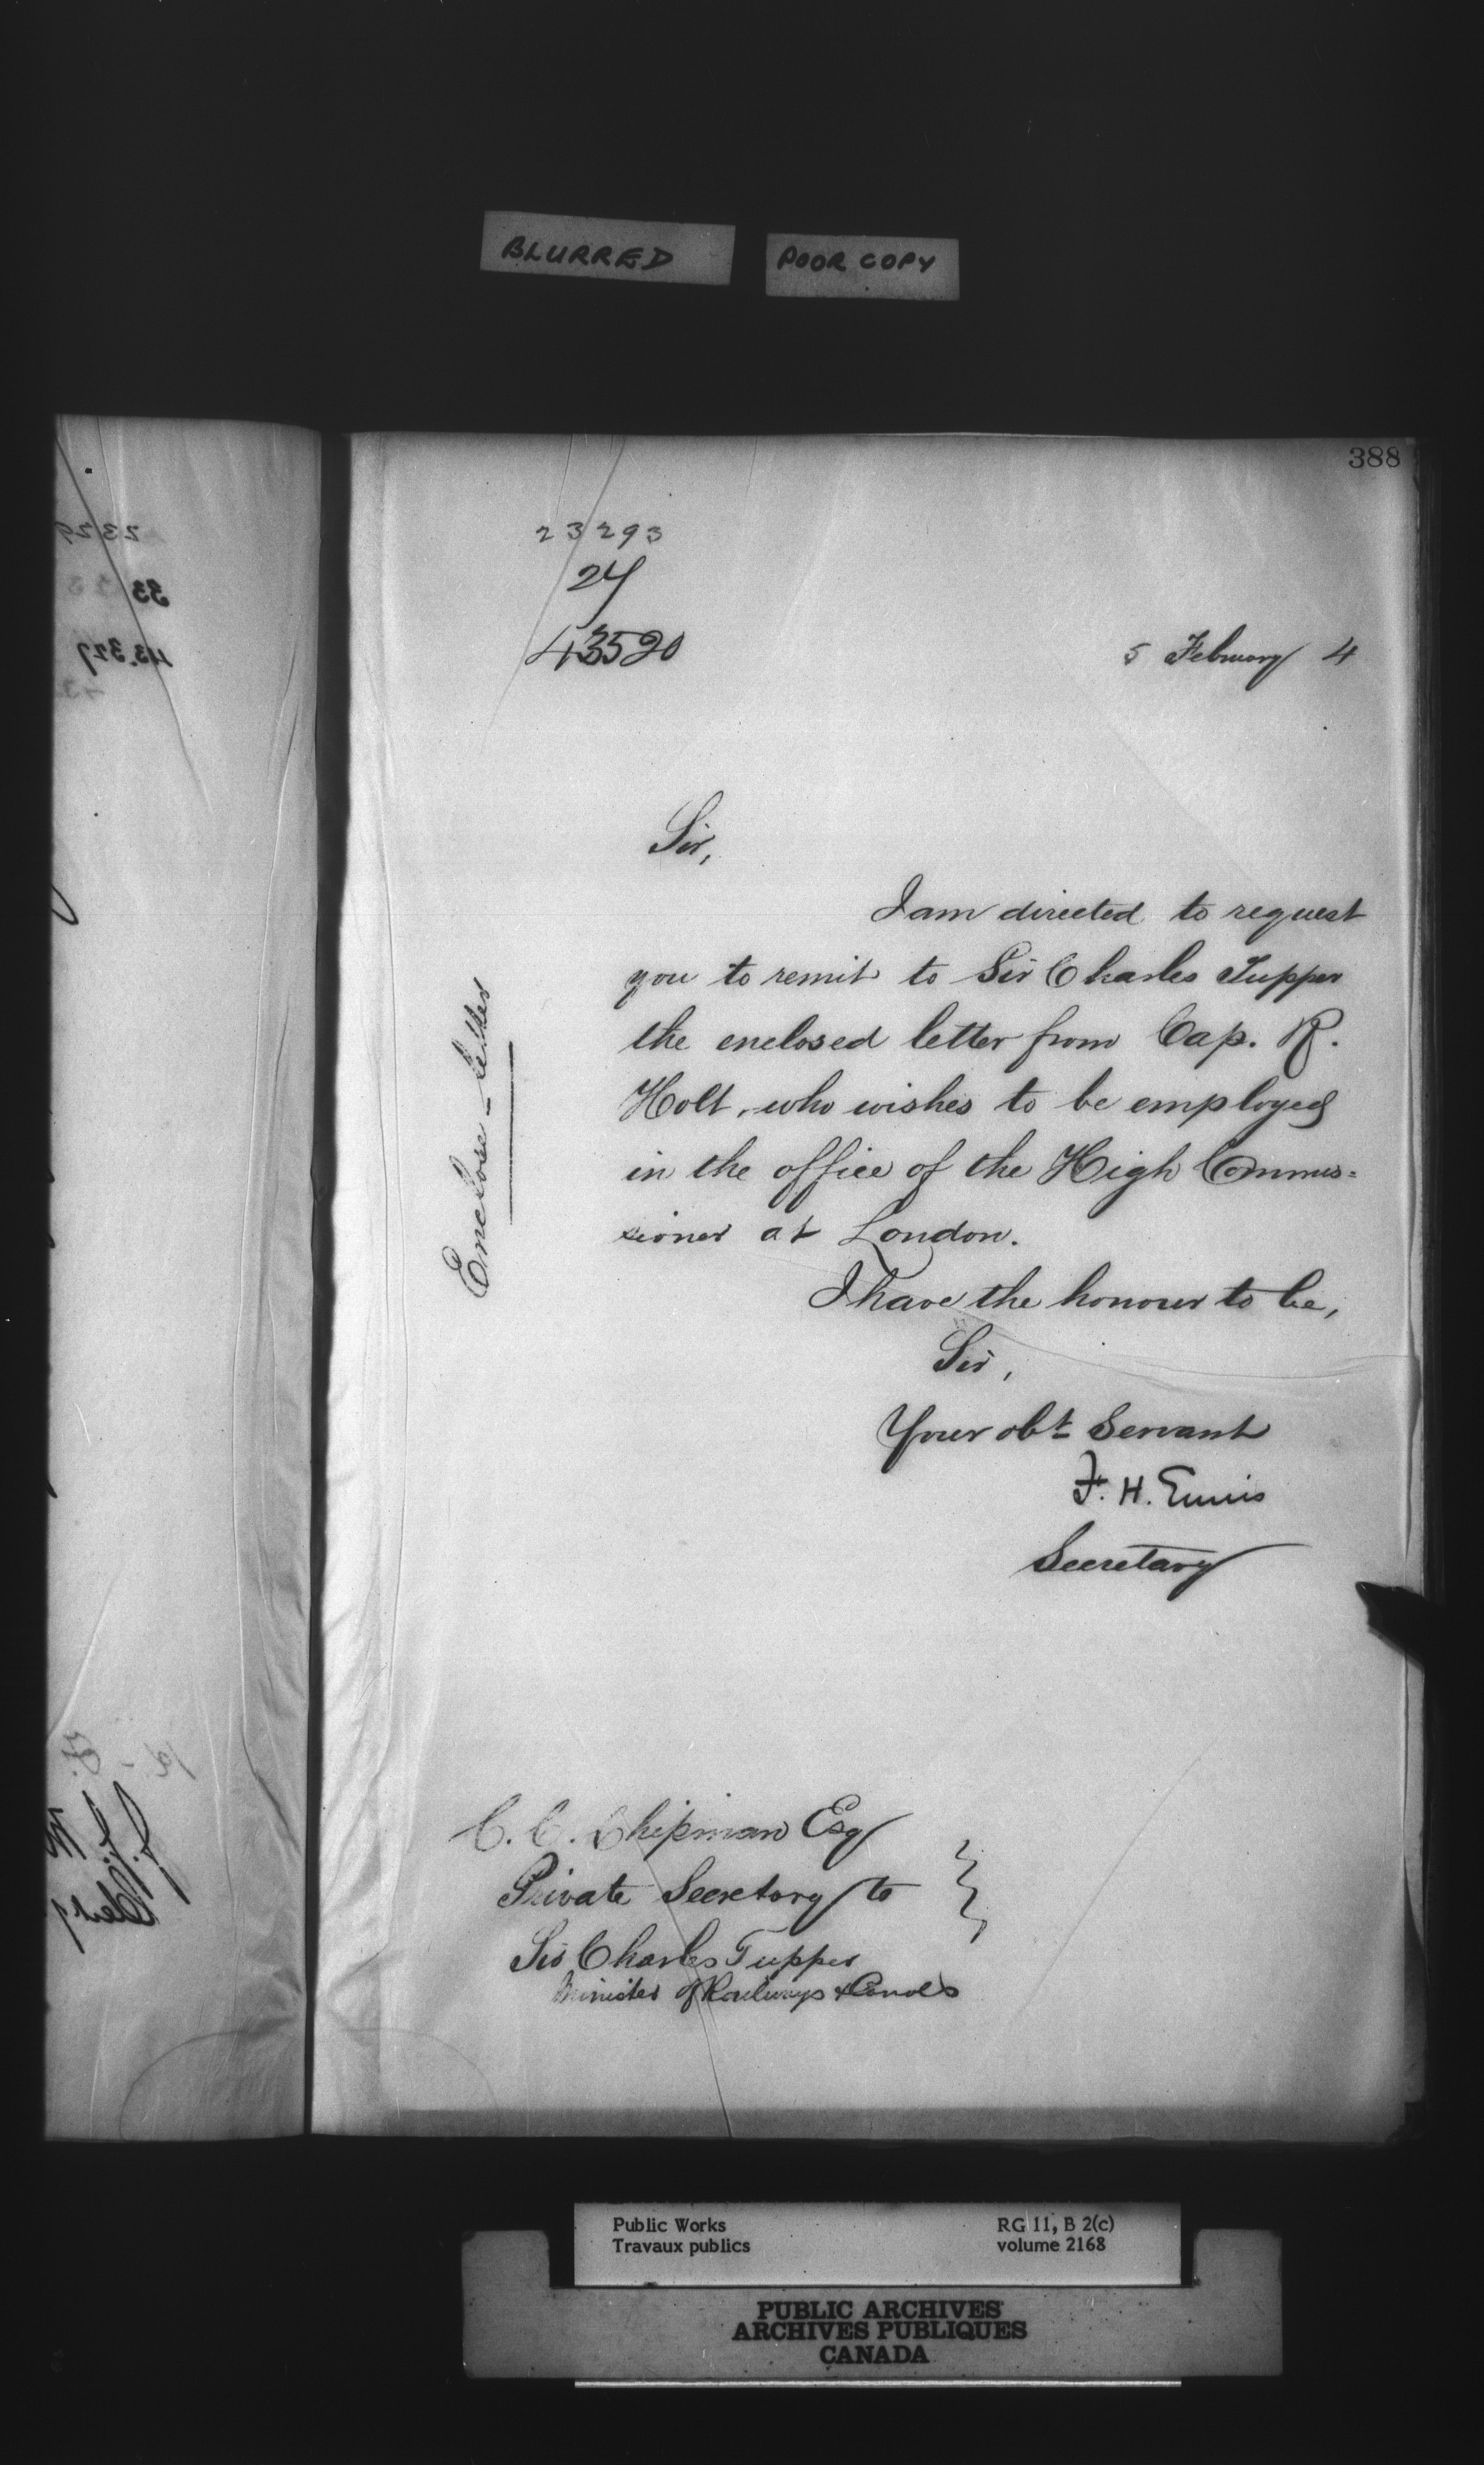 BLURRED
POOR COPY
388
23293
24
43520
5 February 4
Sir,
I am directed to request
you to remit to Sir Charles Tupper
the enclosed letter from Cap. R.
Holt, who wishes to be employed
in the office of the High Commis=
sioner at London.
I have the honour to be,
Sir,
Your obt Servant
F. H. Ennis
Secretary
Enclose - letter
C. C. Chipman Esq
Private Secretary to
Sir Charles Tupper
Minister of Railways & Canals
Public Works
Travaux publics
RG 11, B 2(c)
volume 2168
PUBLIC ARCHIVES
ARCHIVES PUBLIQUES
CANADA